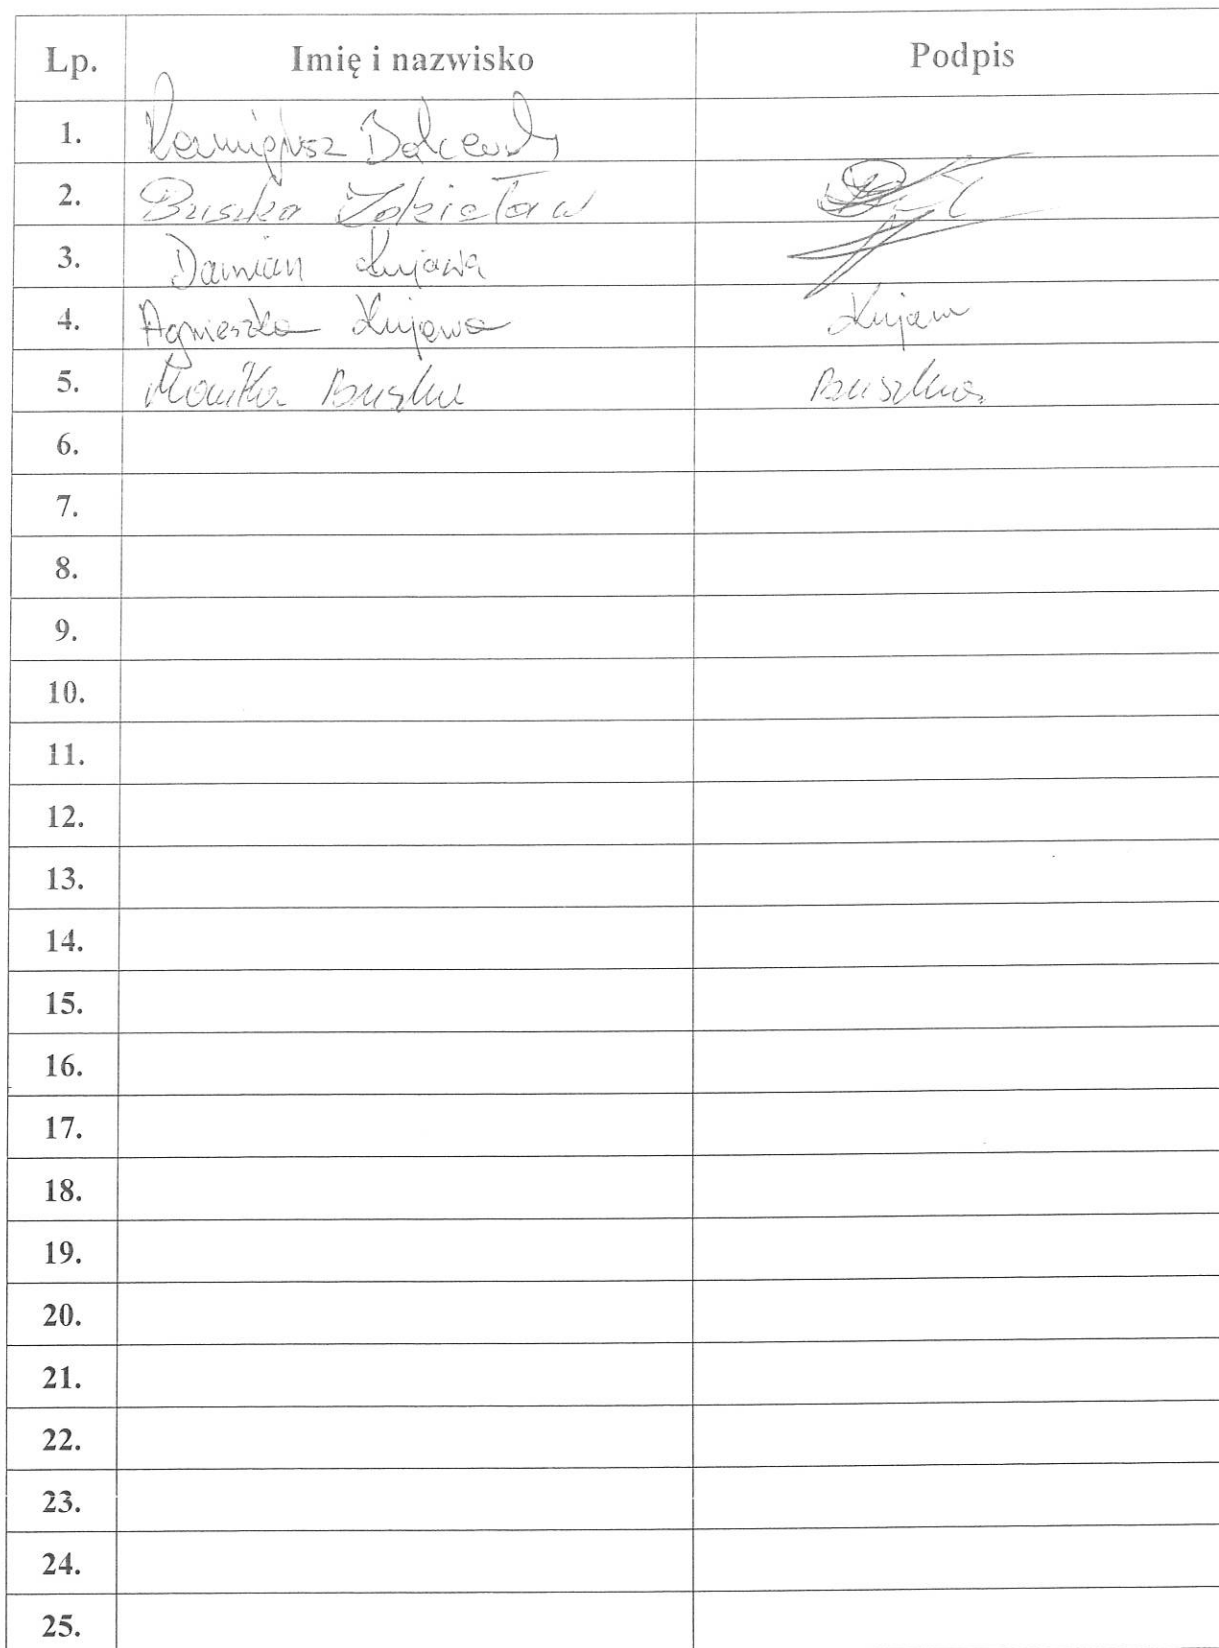 Lp. Imię i nazwisko Podpis
1. Remigiusz
2. Buszka Zdzisław
3. Damian Kujawa
4. Agnieszka Kujawa Kujawa
5. Monika Buszka Buszka
6.
7.
8.
9.
10.
11.
12.
13.
14.
15.
16.
17.
18.
19.
20.
21.
22.
23.
24.
25.